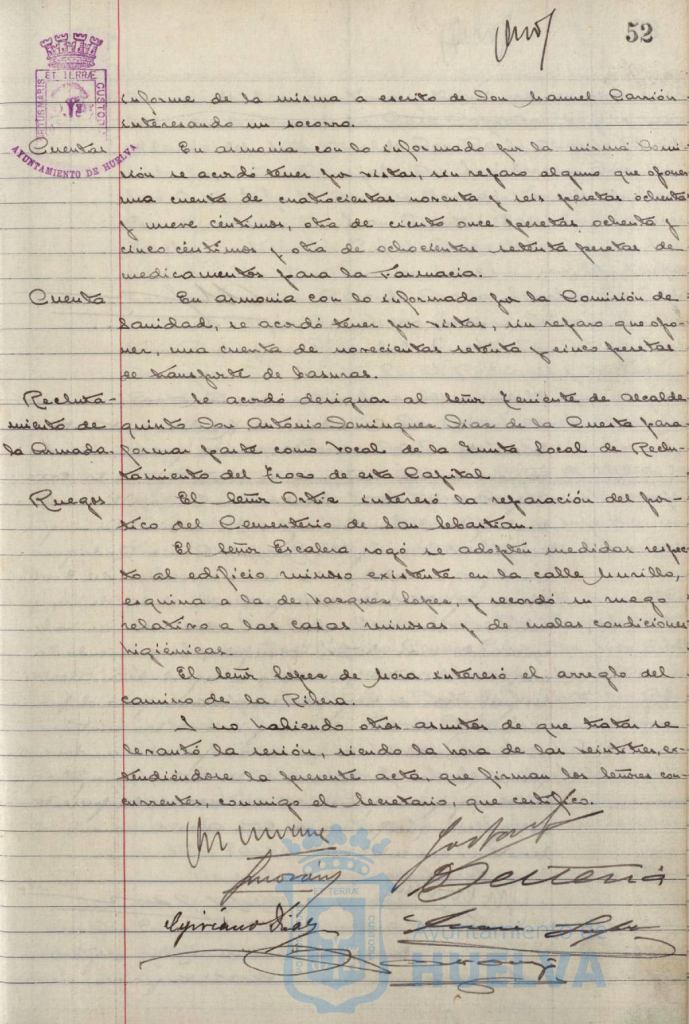 52
ET TERRÆ
PORTUS MARIS
CUSTODIA
AYUNTAMIENTO DE HUELVA
informe de la misma a escrito de Don Manuel Carrión
interesando un socorro.
Cuentas En armonía con lo informado por la misma Comi-
sión se acordó tener por vistas, sin reparo alguno que oponer
una cuenta de cuatrocientas noventa y seis pesetas ochenta
y nueve céntimos, otra de ciento once pesetas ochenta y
cinco céntimos y otra de ochocientas setenta pesetas de
medicamentos para la Farmacia.
Cuenta En armonía con lo informado por la Comisión de
Sanidad, se acordó tener por vistas, sin reparo que opo-
ner, una cuenta de novecientas setenta y cinco pesetas
de transporte de basuras.
Recluta- Se acordó designar al Señor Teniente de Alcalde
miento de quinto Don Antonio Dominguez Dias de la Cuesta para
la Armada. formar parte como Vocal de la Junta local de Reclu-
tamiento del Trozo de esta Capital
Ruegos El Señor Ortiz interesó la reparación del pór-
tico del Cementerio de San Sebastian.
El Señor Escalera rogó se adopten medidas respec-
to al edificio ruinoso existente en la calle Murillo,
esquina a la de Vazquez Lopez, y recordó su ruego
relativo a las casas ruinosas y de malas condiciones
higiénicas.
El Señor Lopez de Mora interesó el arreglo del
camino de la Ribera.
Y no habiendo otros asuntos de que tratar se
levantó la sesión, siendo la hora de las veintitres, ex-
tendiéndose la presente acta, que firman los Señores con-
currentes, conmigo el Secretario, que certifico.
Cipriano Dias
ET TERRÆ
Ayuntamiento de
HUELVA